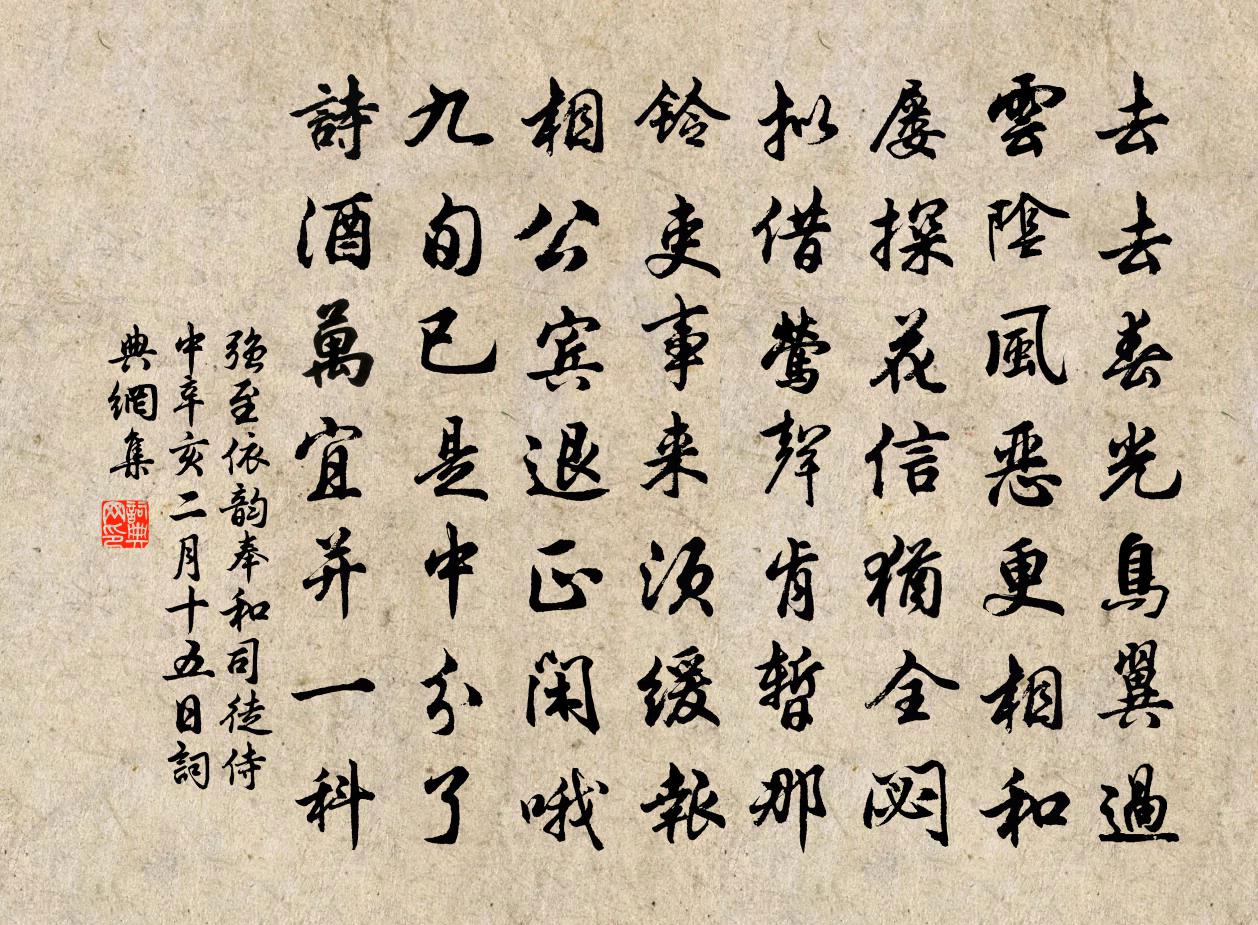 去去春光鳥翼過
雲陰風惡更相和
屢探花信猶全閟
拟借鶯聲肯暫那
鈴吏事来須緩報
相公宾退正閑哦
九旬已是中分了
詩酒萬宜并一科
强至依韵奉和司徒侍
中辛亥二月十五日詞
典網集
詞典网印